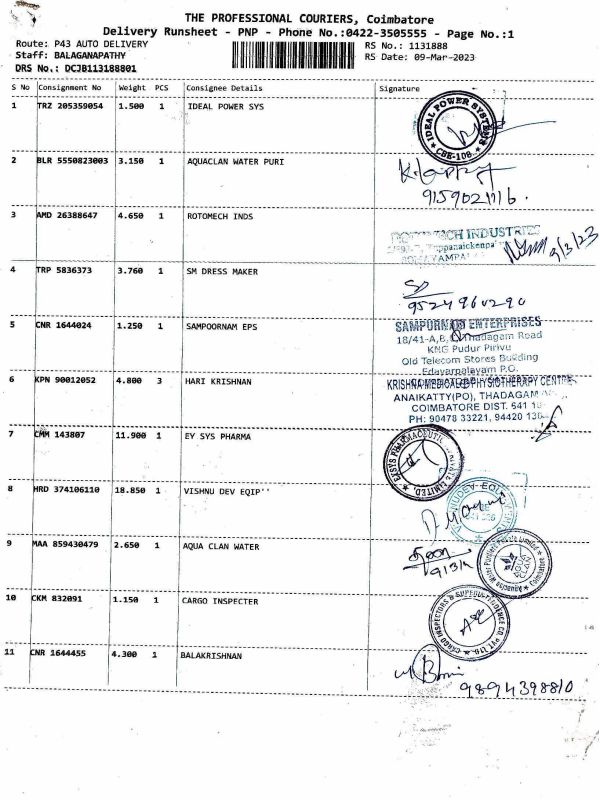 THE PROFESSIONAL COURIERS, Coimbatore
Delivery Runsheet - PNP - Phone No.:0422-3505555 - Page No.:1
Route: P43 AUTO DELIVERY RS No.: 1131888
Staff: BALAGANAPATHY RS Date: 09-Mar-2023
DRS No.: DCJB113188801
S No Consignment No Weight PCS Consignee Details Signature
1 TRZ 205359054 1.500 1 IDEAL POWER SYS
IDEAL POWER SYSTEMS
CBE-108.
2 BLR 5550823003 3.150 1 AQUACLAN WATER PURI
3 AMD 26388647 4.650 1 ROTOMECH INDS
INDUSTRIES
9/3/23
4 TRP 5836373 3.760 1 SM DRESS MAKER
9524960290
5 CNR 1644024 1.250 1 SAMPOORNAM EPS
SAMPURNAM ENTERPRISES
18/41-A,B, Thadagam Road
KNG Pudur Pirivu
Old Telecom Stores Building
Edayarpalayam P.O.
6 KPN 90012052 4.800 3 HARI KRISHNAN
KRISHNA MEDICAL & PHYSIOTHERAPY CENTRE
ANAIKATTY(PO), THADAGAM
COIMBATORE DIST. 641
PH: 90478 33221, 94420
7 CMM 143807 11.900 1 EY SYS PHARMA
8 HRD 374106110 18.850 1 VISHNU DEV EQIP''
9 MAA 859430479 2.650 1 AQUA CLAN WATER
AQUA CLAN
Aquaclan Water Purifiers Private Limited
Coimbatore
10 CKM 832091 1.150 1 CARGO INSPECTER
CARGO INSPECTORS & SUPERINTENDENCE CO. PVT. LTD.
11 CNR 1644455 4.300 1 BALAKRISHNAN
9894398810